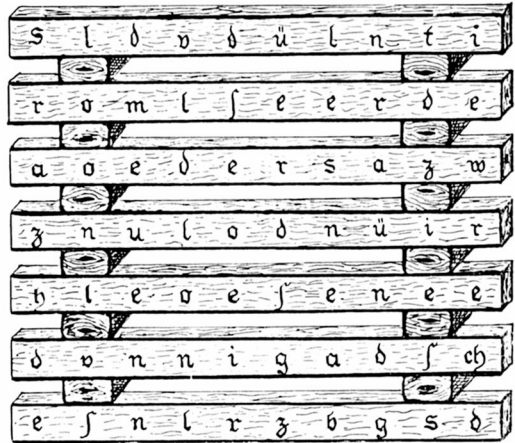 S l d v d ü l n t i
r o m l ſ e e r d e
a o e d e r s a z w
z n u l o d n ü i r
h l e o e ſ e n e e
d v n n i g a d ſ ch
e ſ n l r z b g s d